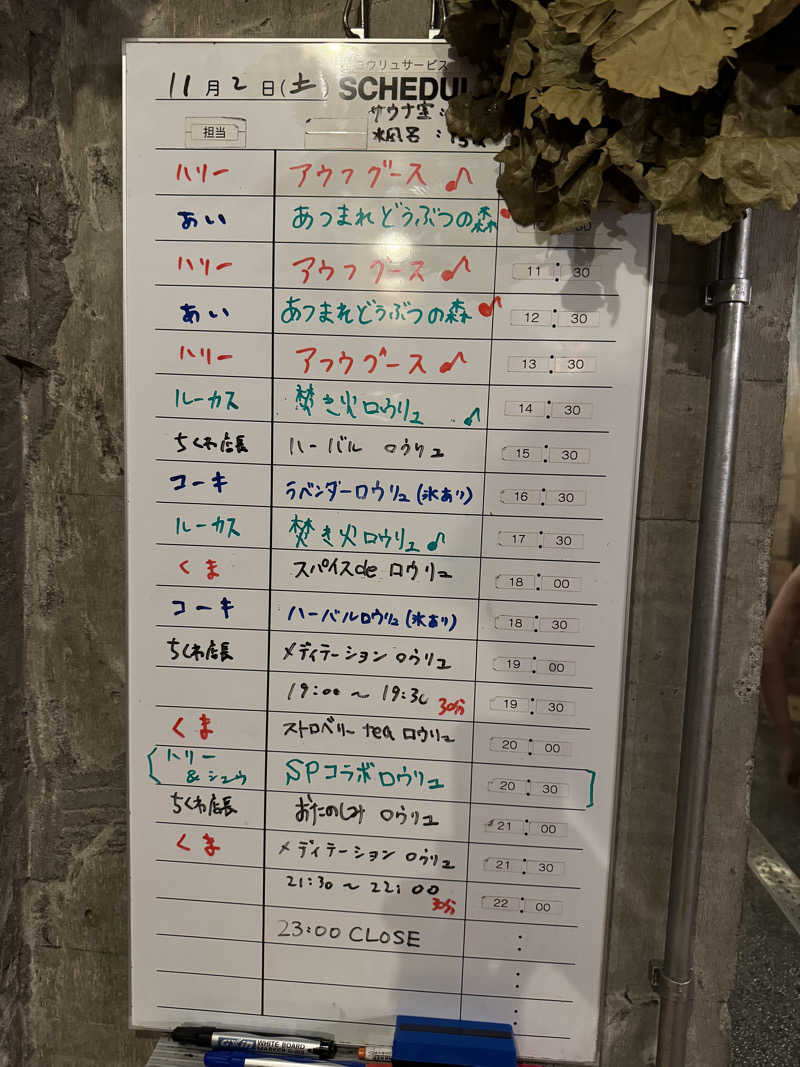 ロウリュサービス
11月2日(土) SCHEDUL
サウナ室:
水風呂:
担当
ハリー アウフグース♪
あい あつまれどうぶつの森♪ 30
ハリー アウフグース♪ 11:30
あい あつまれどうぶつの森♪ 12:30
ハリー アウフグース♪ 13:30
ルーカス 焚き火ロウリュ♪ 14:30
ちくわ店長 ハーバル ロウリュ 15:30
コーキ ラベンダーロウリュ(氷あり) 16:30
ルーカス 焚き火ロウリュ♪ 17:30
くま スパイスde ロウリュ 18:00
コーキ ハーバルロウリュ(氷あり) 18:30
ちくわ店長 メディテーションロウリュ 19:00
19:00～19:30 30分 19:30
くま ストロベリーtea ロウリュ 20:00
ハリー & シュウ SPコラボロウリュ 20:30
ちくわ店長 おたのしみ ロウリュ 21:00
くま メディテーション ロウリュ 21:30
21:30～22:00 30分 22:00
23:00 CLOSE
WHITE BOARD